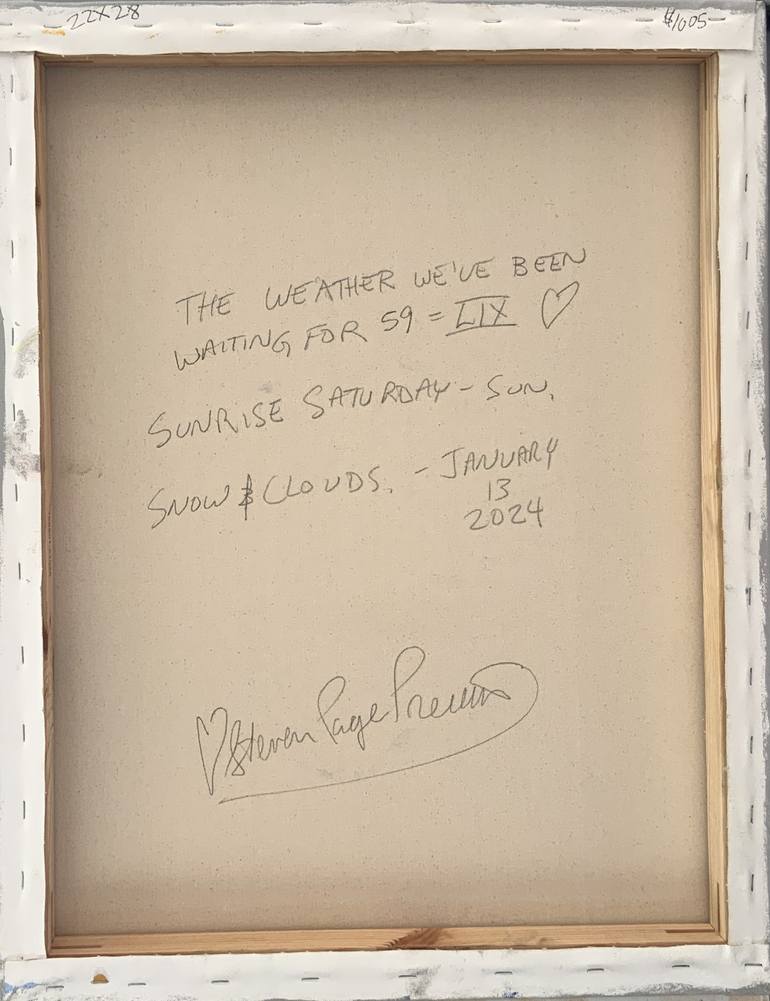 22X28
$1005
THE WEATHER WE'VE BEEN
WAITING FOR 59 = LIX ♡
SUNRISE SATURDAY - SUN,
SNOW & CLOUDS. - JANUARY
13
2024
♡ Steven Page Prewitt